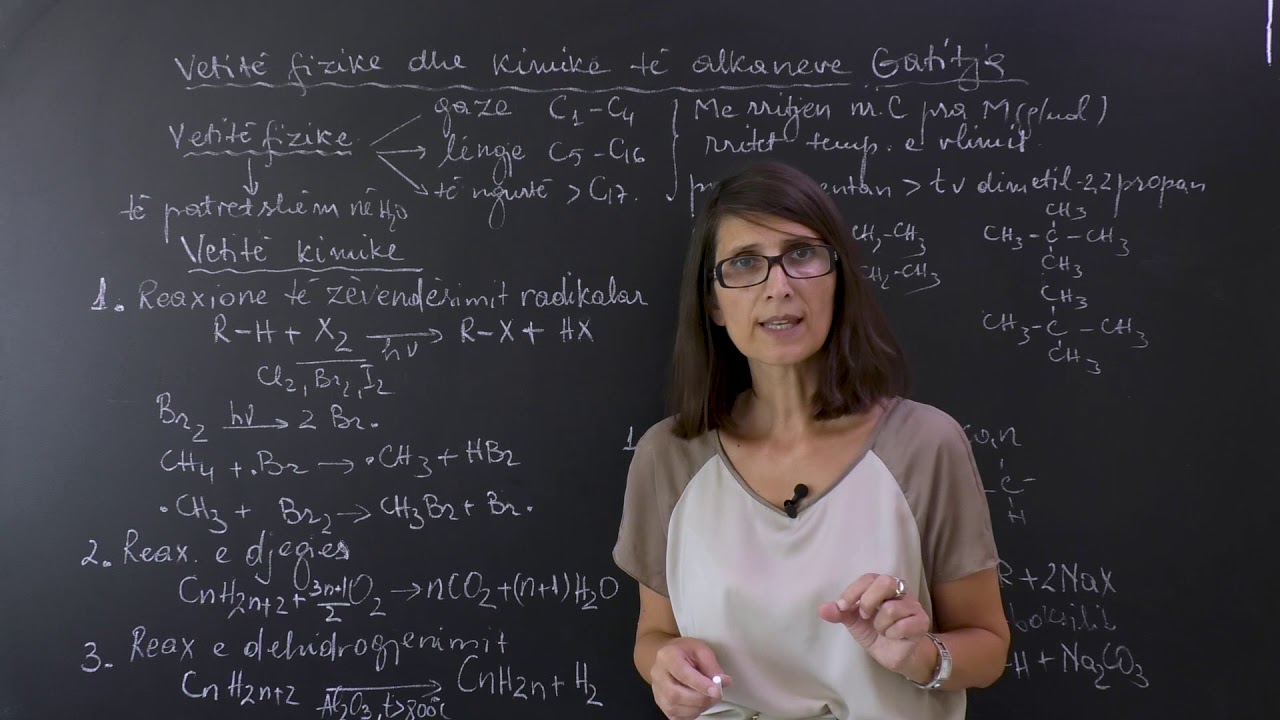 Vetitë fizike dhe kimike të alkaneve Gatitja
Vetitë fizike
gaze C1-C4
lëngje C5-C16
të ngurtë > C17.
Me rritjen nr.C pra M(g/mol)
rritet temp. e vlimit.
> tv dimetil-2,2 propan
të patretshëm në H2O
CH2-CH3
CH2-CH3
CH3
CH3-C-CH3
CH3
CH3
CH3-C-CH3
CH3
Vetitë kimike
1. Reaxione të zëvendësimit radikalar
R-H + X2 hν → R-X + HX
Cl2, Br2, I2
Br2 hν → 2 Br.
CH4 + .Br → .CH3 + HBr
.CH3 + Br2 → CH3Br + Br.
2. Reax. e djegies
CnH2n+2 + 3n+1/2 O2 → nCO2 + (n+1)H2O
3. Reax e dehidrogjenimit
CnH2n+2 → CnH2n + H2
Al2O3, t>800°C
1
-C-
H
R + 2NaX
H + Na2CO3